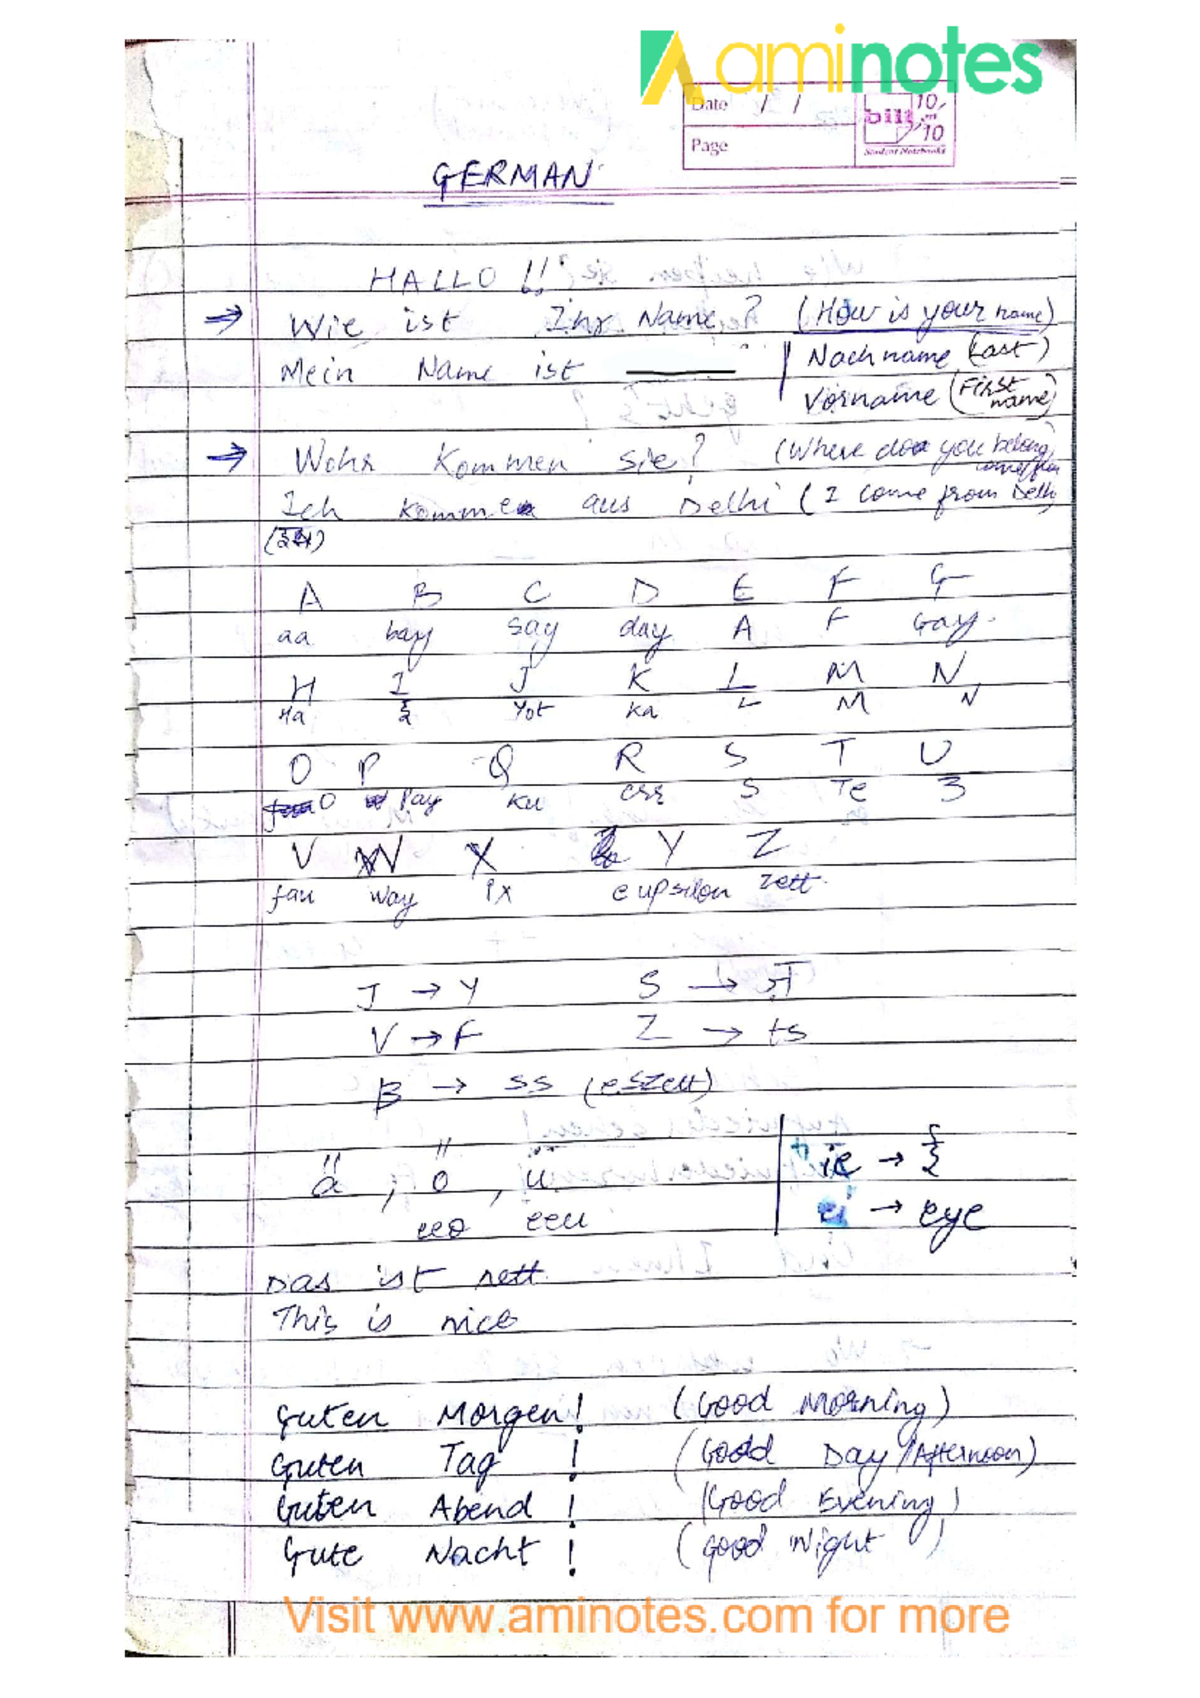 aminotes
Date / /
bilt 10 on 10
Student Notebooks
Page
GERMAN
HALLO !!
⇒ Wie ist Ihr Name? (How is your name)
Mein Name ist ______ | Nachname (Last)
Vorname (First name)
⇒ Wohr kommen sie? (Where do you belong
come from
Ich komme aus Delhi (I come from Delhi
A B C D E F G
aa bay say day A F Gay
H I J K L M N
Ha ई Yot Ka L M N
O P Q R S T U
O Pay Ku err S Te उ
V W X Y Z
fau way ix eupsilon zett
J → Y S → ज
V → F Z → ts
β → ss (eszett)
ä , ö , ü | ie → ई
eeu ei → eye
Das ist nett
This is nice
Guten Morgen! (Good Morning)
Guten Tag ! (Good Day/Afternoon)
Guten Abend ! (Good Evening)
Gute Nacht ! (Good Night)
Visit www.aminotes.com for more